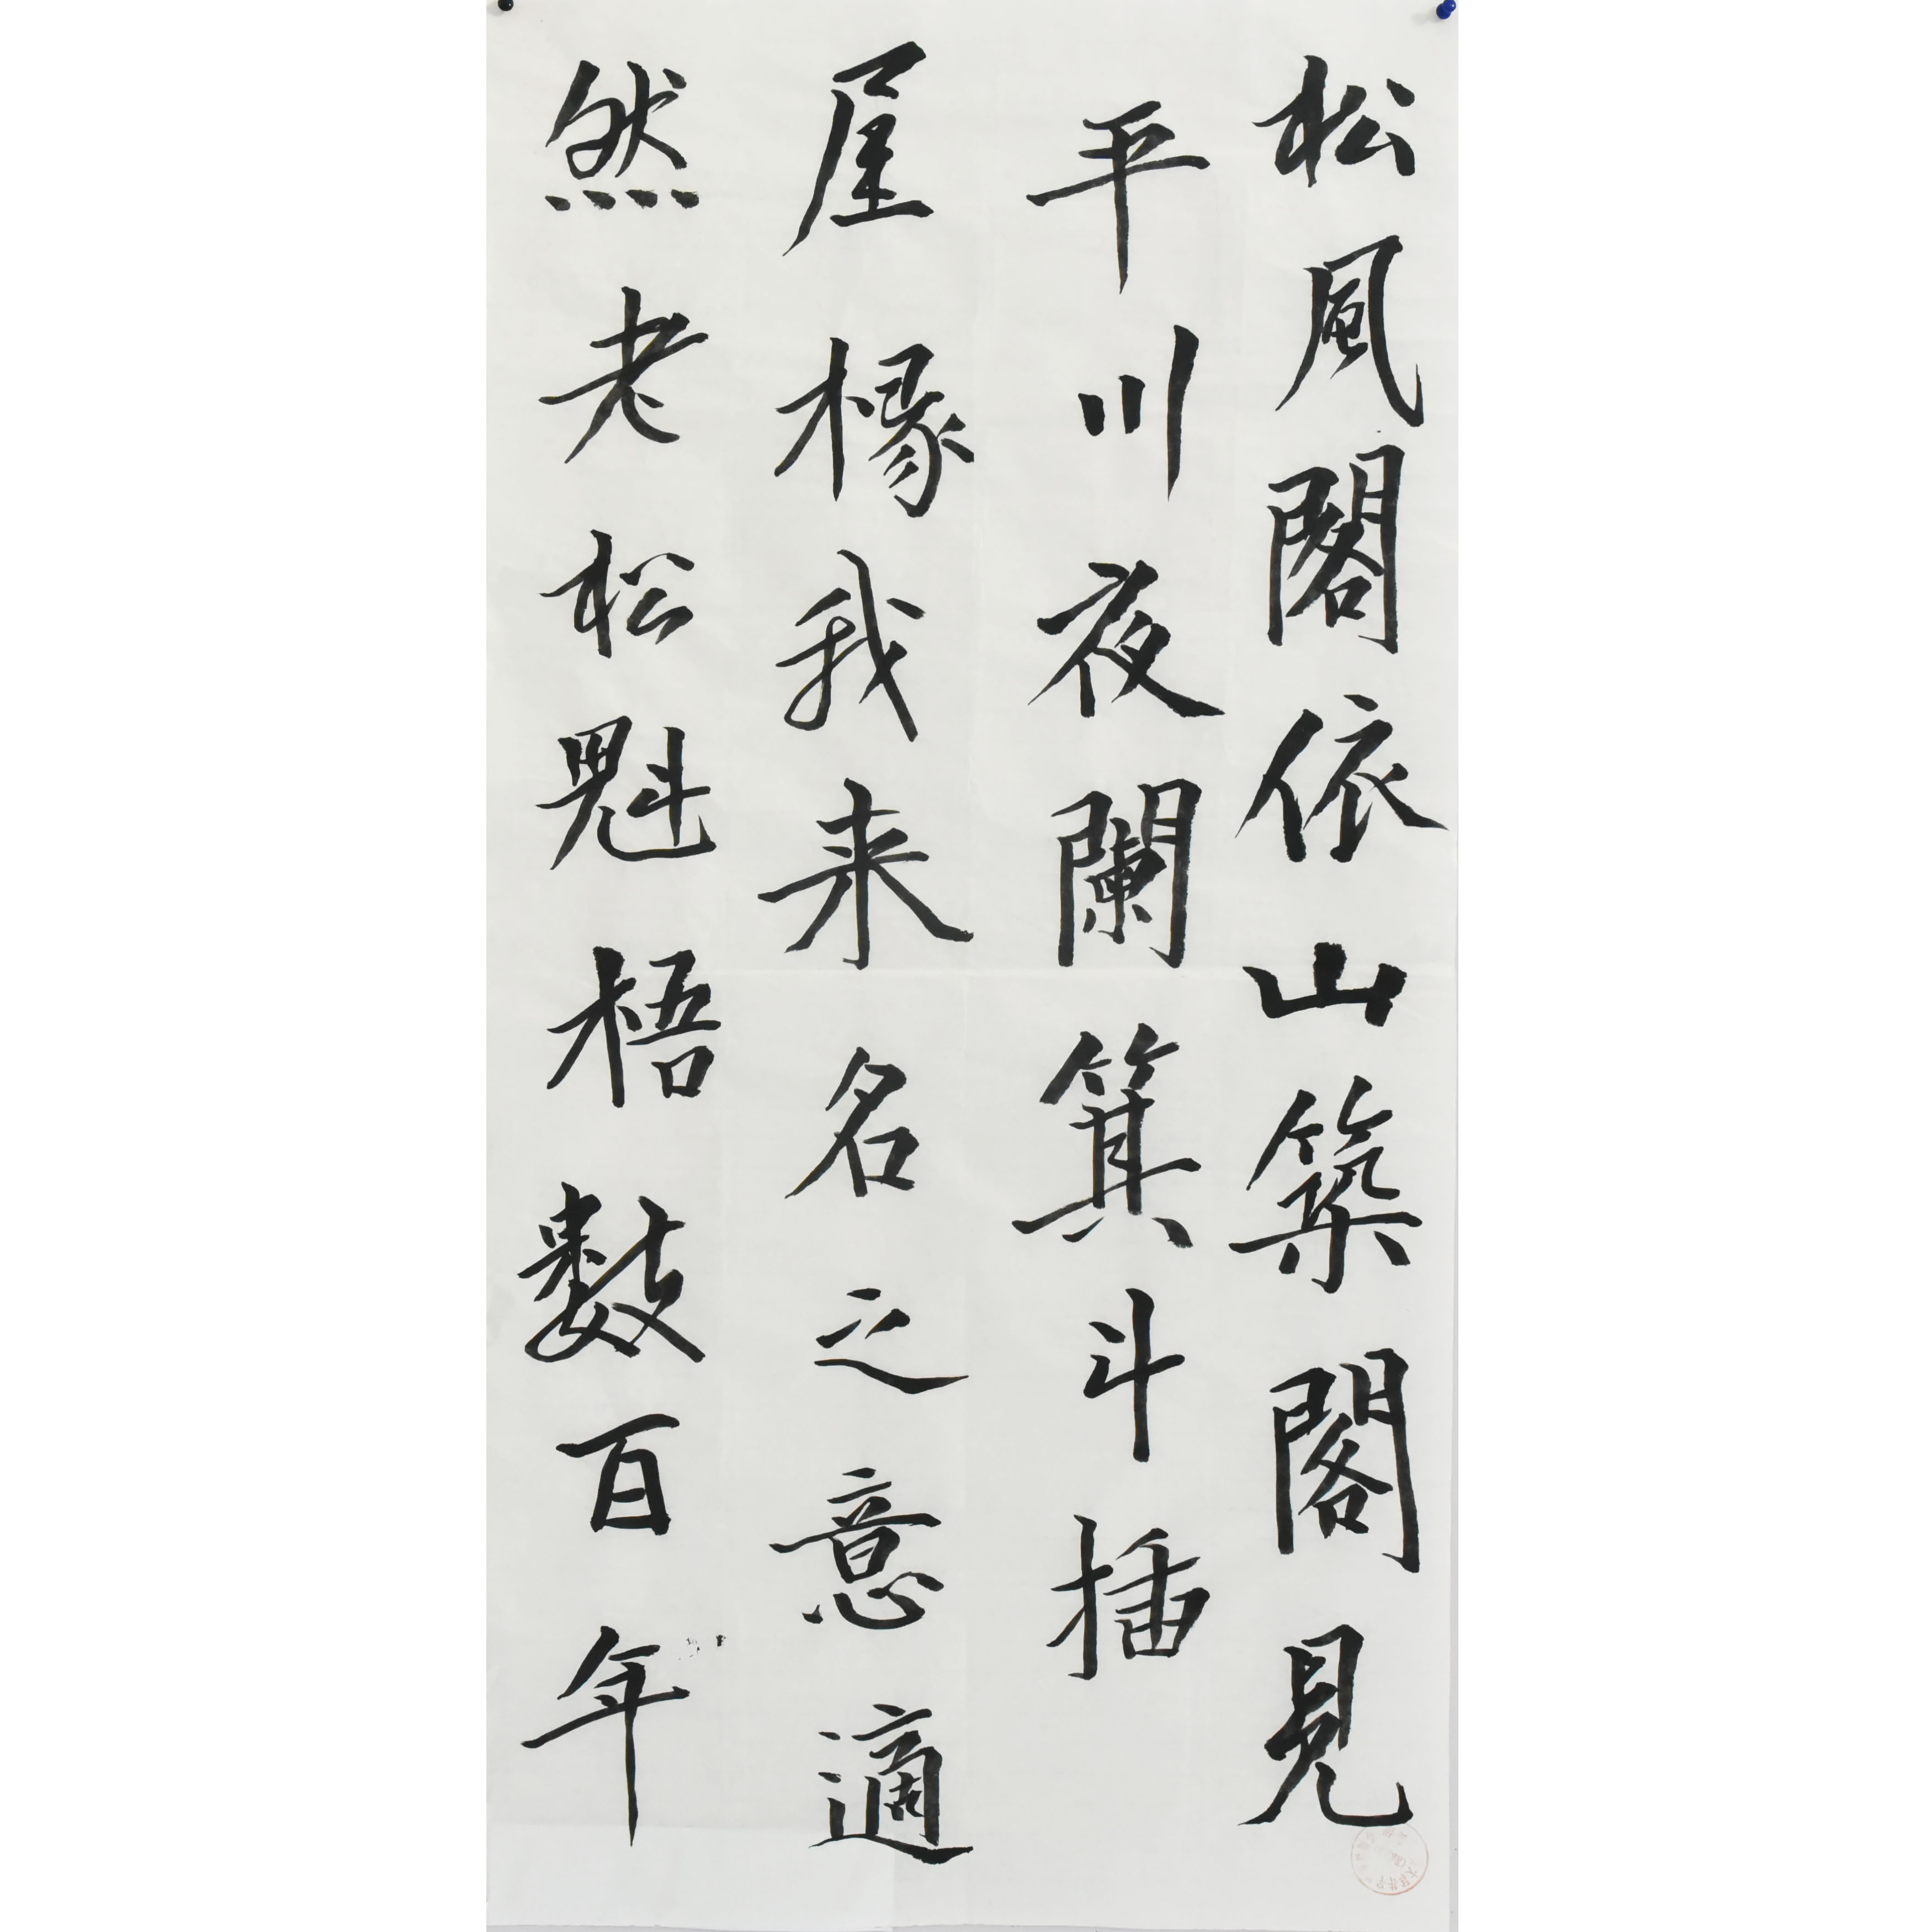 松風閣依山築閣見
平川夜闌箕斗插
屋椽我来名之意適
然老松魁梧數百年